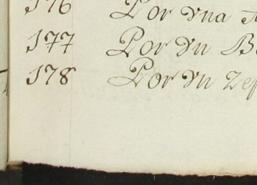 176 Por vna
177 Por vn B
178 Por vn zep